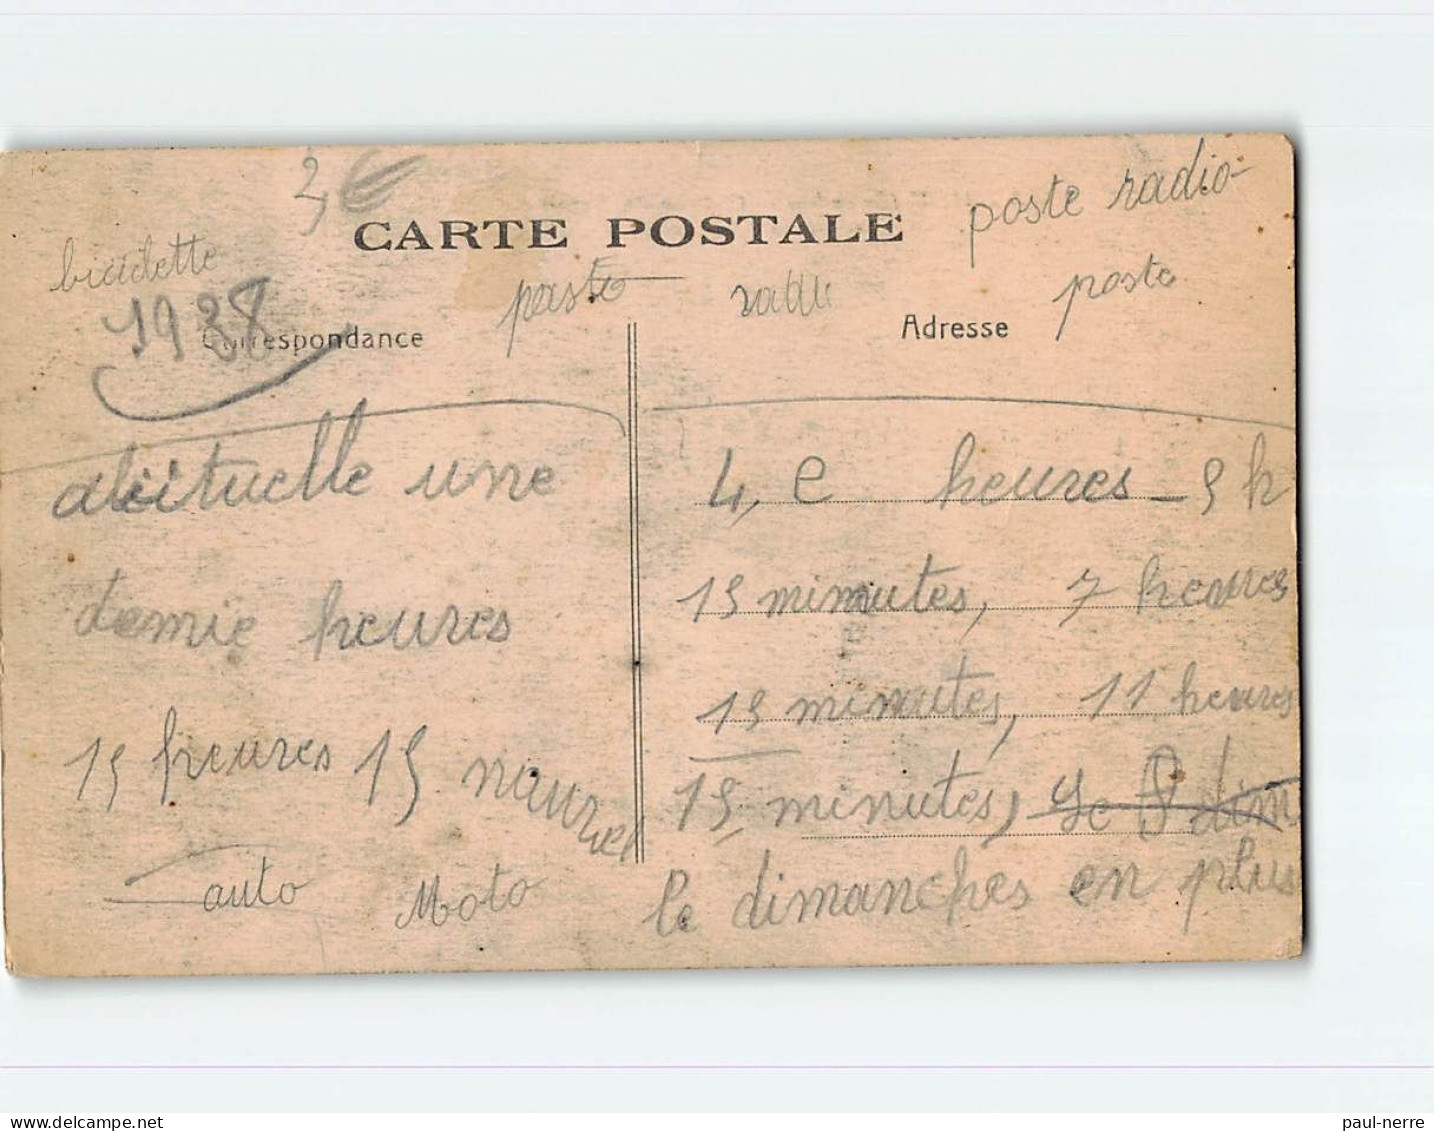 3 €
poste radio-
CARTE POSTALE
bicidette
poste
poste
1938
Correspondance
Adresse
une
4, e heures - 9 h
demie heures
15 minutes, 7 heures
15 minutes, 11 heures
15 heures 15
15 minutes, Le P dim
auto Moto
le dimanches en plus
paul-nerre